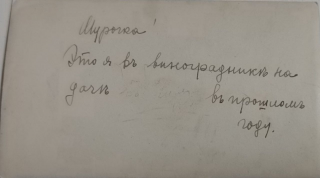 Мурочка!
Это я въ виноградникѣ на
дачѣ въ прошломъ
году.